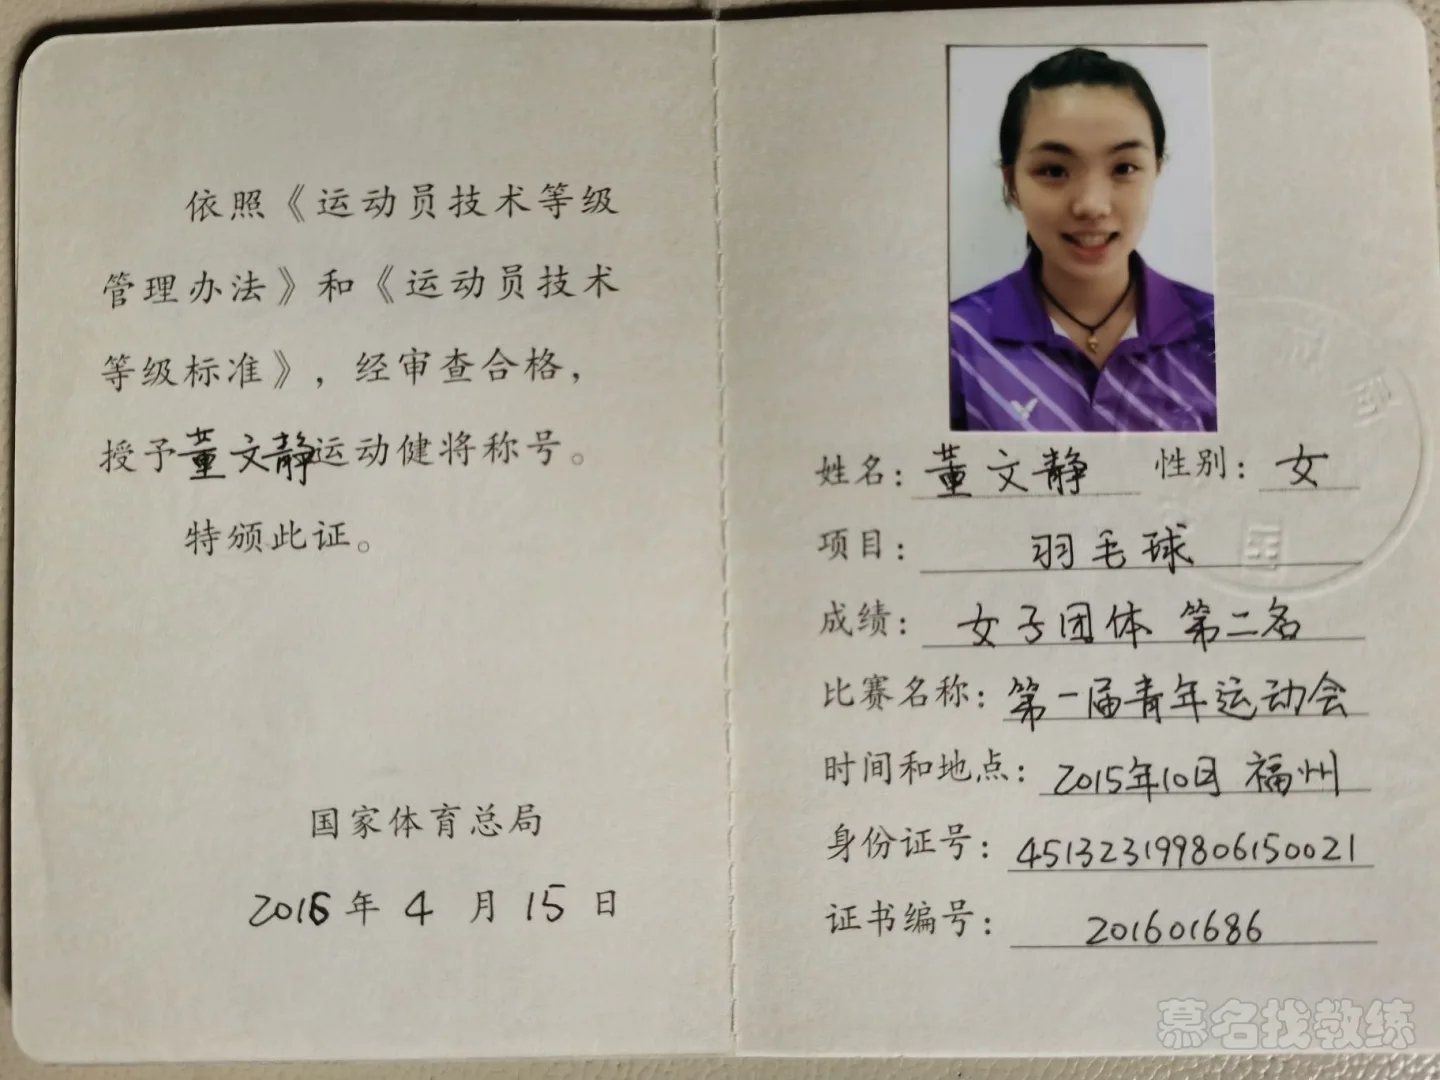 依照《运动员技术等级
管理办法》和《运动员技术
等级标准》，经审查合格，
授予董文静运动健将称号。
特颁此证。
国家体育总局
2016年4月15日
姓名：董文静 性别：女
项目：羽毛球
成绩：女子团体 第二名
比赛名称：第一届青年运动会
时间和地点：2015年10月 福州
身份证号：451323199806150021
证书编号：201601686
慕名找教练